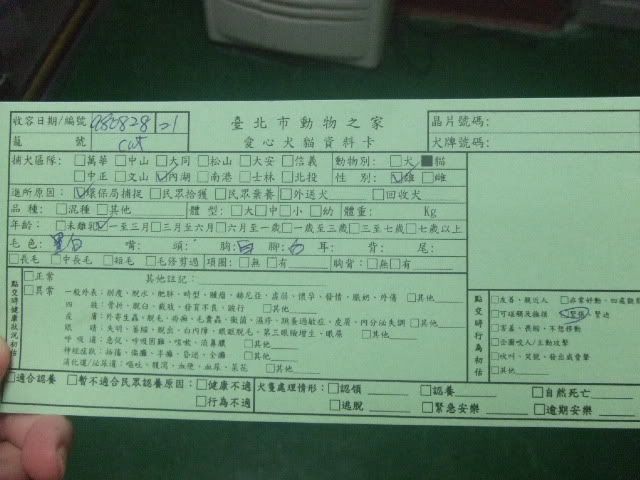 收容日期/編號 980828 21 臺北市動物之家 晶片號碼:
籠號 cat 愛心犬貓資料卡 犬牌號碼:
捕犬區隊: □萬華 □中山 □大同 □松山 □大安 □信義 動物別: □犬 ■貓
□中正 □文山 ☑內湖 □南港 □士林 □北投 性別: ☑雄 □雌
進所原因: ☑環保局捕捉 □民眾拾獲 □民眾棄養 □外送犬 □回收犬
品種: □混種 □其他 體型: □大 □中 □小 □幼 體重: Kg
年齡: □未離乳 ☑一至三月 □三月至六月 □六月至一歲 □一歲至三歲 □三至七歲 □七歲以上
毛色: 黑白 嘴: 頭: 胸: 白 腳: 白 耳: 背: 尾:
□長毛 □中長毛 □短毛 □毛修剪過 項圈: □無 □有 胸背: □無 □有
點交時健康狀況初估 □正常 其他註記:
□異常 一般外表: 削瘦、脫水、肥胖、畸型、腫瘤、赫尼亞、虛弱、懷孕、發情、脹奶、外傷 □其他
四肢: 骨折、脫臼、截肢、發育不良、跛行 □其他
皮膚: 外寄生蟲、脫毛、疥癬、毛囊蟲、黴菌、濕疹、跳蚤過敏症、皮屑、內分泌失調 □其他
眼睛: 失明、萎縮、脫出、白內障、眼瞼脫毛、第三眼瞼增生、眼屎 □其他
呼吸道: 急促、呼吸困難、咳嗽、流鼻膿 □其他
神經症狀: 抽搐、偏癱、半癱、昏迷、全癱 □其他
消化道/泌尿道: 嘔吐、腹瀉、血便、血尿、菜花 □其他
點交時行為初估 □友善、親近人 □非常好動、四處觀察
□可碰觸及擁抱 ☑緊張、緊迫
□害羞、畏縮、不想移動
□企圖咬人/主動攻擊
□吠叫、哭號、發出威脅聲
□其他
□適合認養 □暫不適合民眾認養原因: □健康不適 犬隻處理情形: □認領 □認養 □自然死亡
□行為不適 □逃脫 □緊急安樂 □逾期安樂